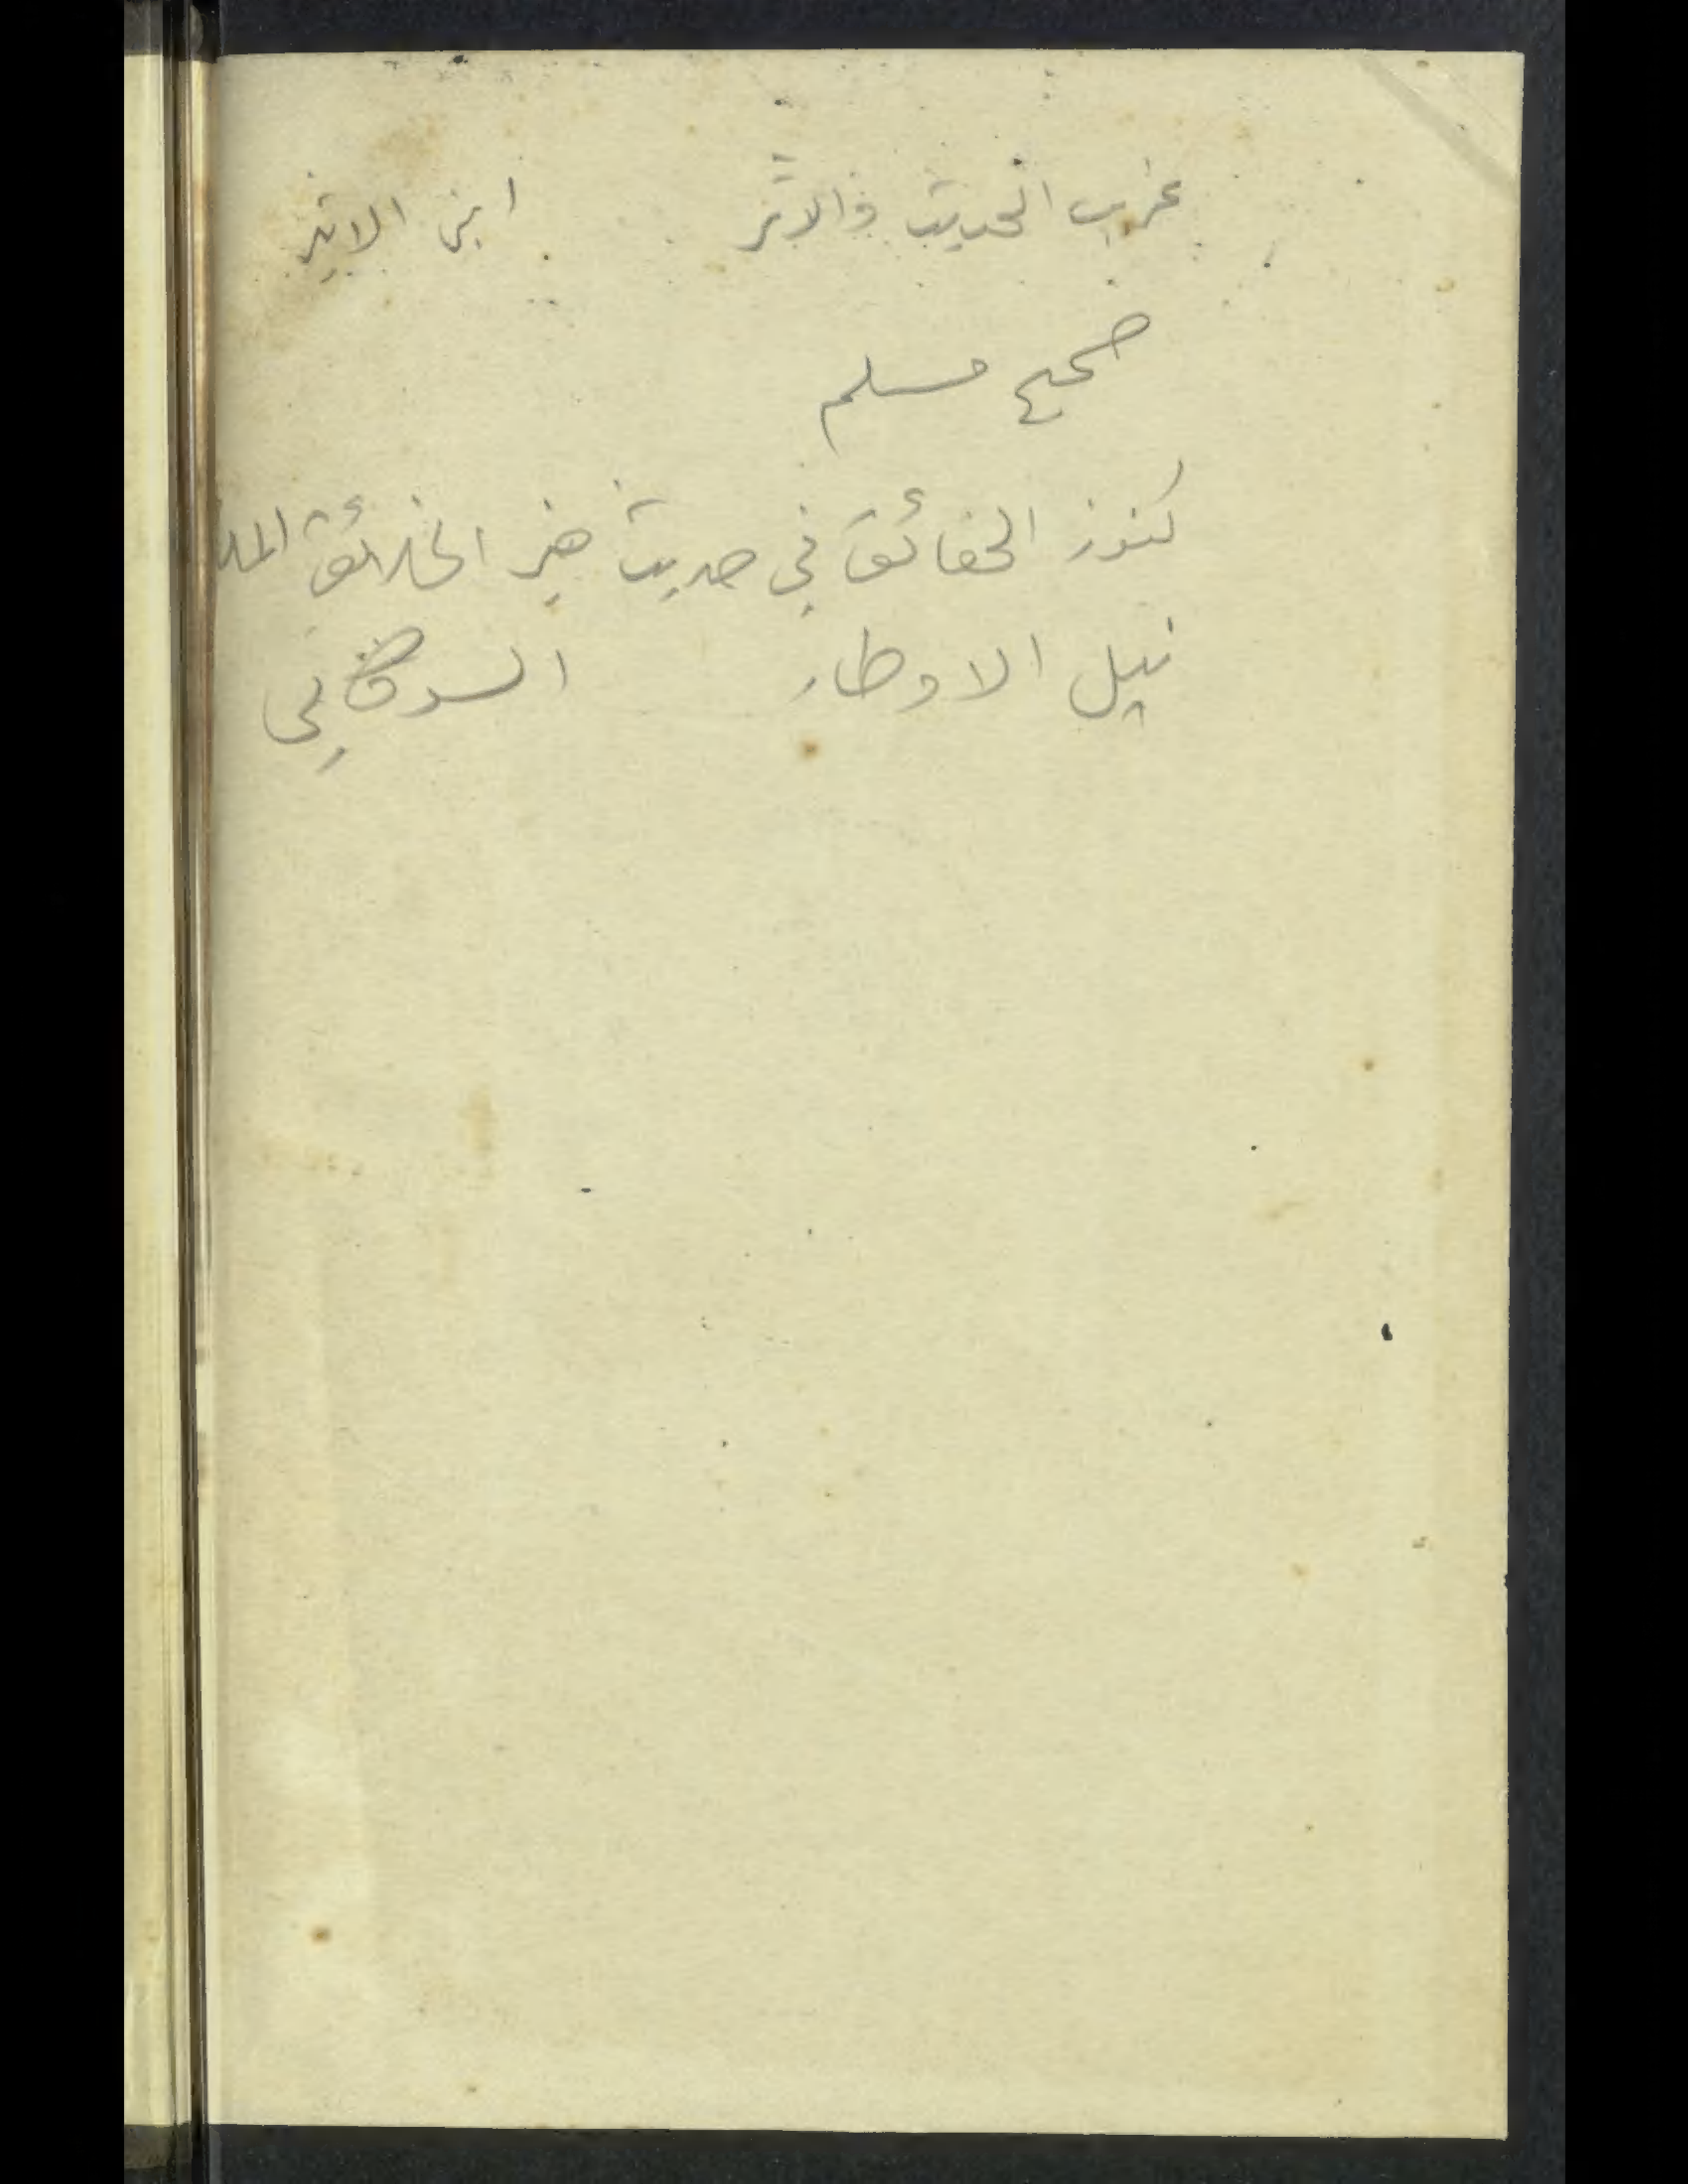 غريب الحديث والاثر ابن الاثير
صحيح مسلم
كنوز الحقائق في حديث خير الخلائق
نيل الاوطار